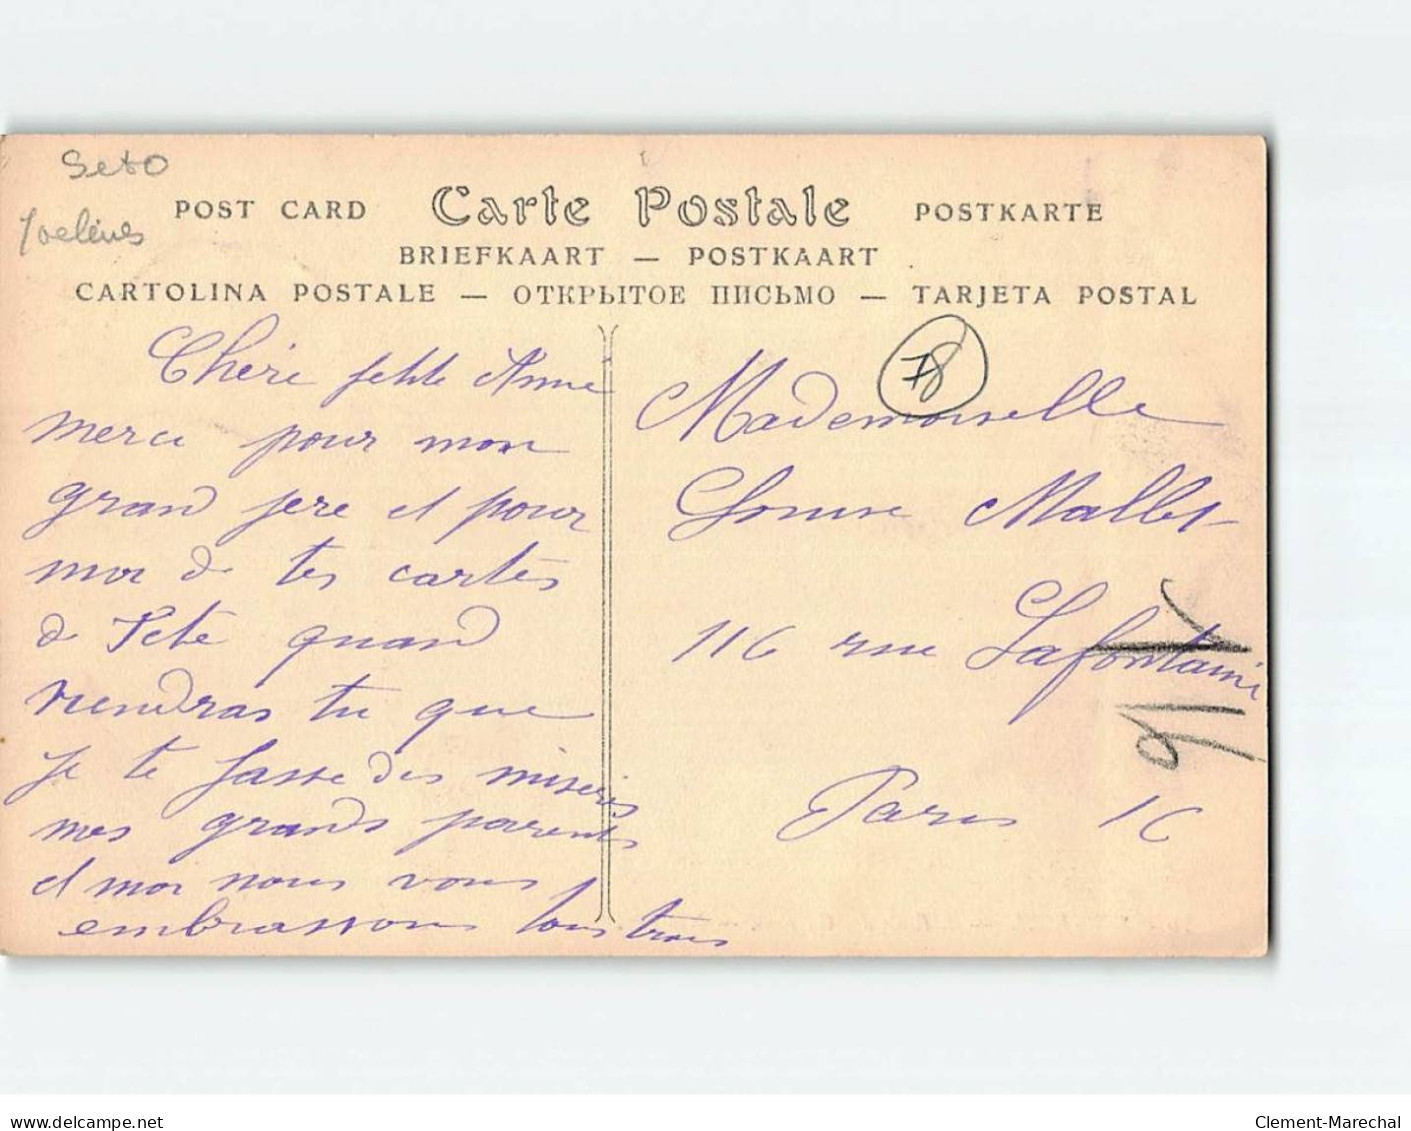 Seto
Yvelines
POST CARD Carte Postale POSTKARTE
BRIEFKAART — POSTKAART
CARTOLINA POSTALE — ОТКРЫТОЕ ПИСЬМО — TARJETA POSTAL
78
Chère petite Amie
merci pour mon
grand père et pour
moi de tes cartes
de Fête quand
viendras tu que
je te fasse des misères
mes grands parents
et moi nous vous
embrassons tous trois
Mademoiselle
Louise Mallet
116 rue Lafontaine
Paris 16
www.delcampe.net
Clement-Marechal